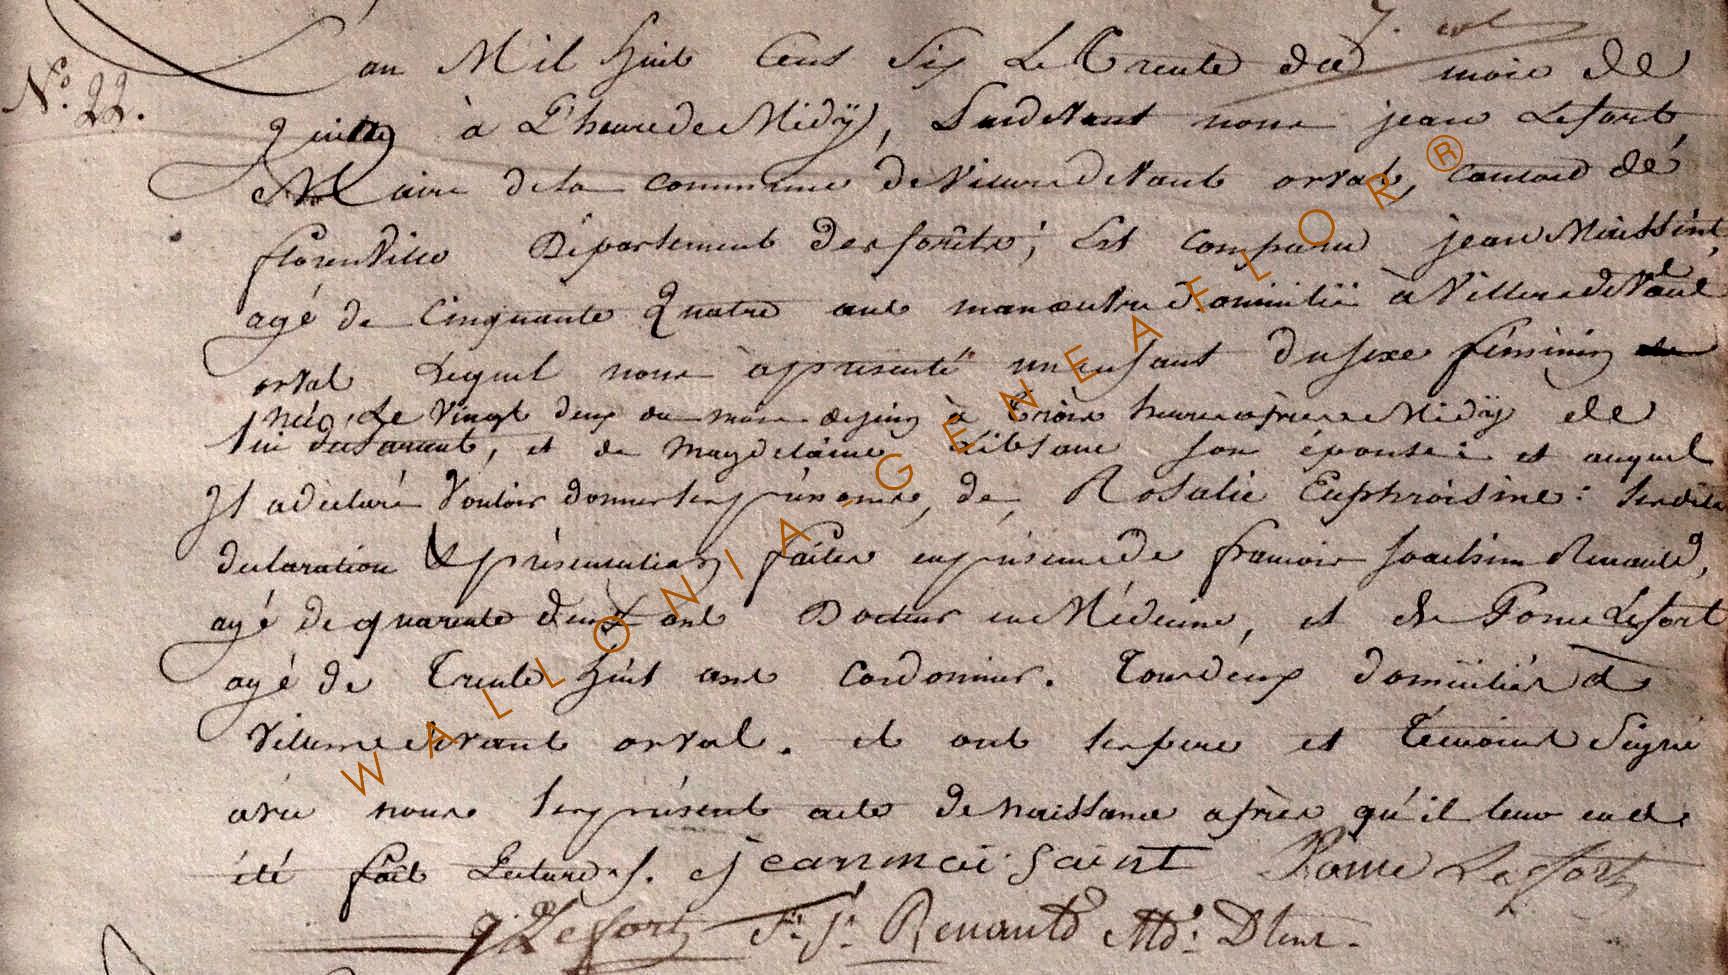 N.º 22.
L'an Mil huit Cent Six Le Trente du mois de
juin à L'heure de Midÿ, Pardevant nous jean Lefort,
Maire de la commune de Villers devant orval, Canton de
florenville Département des forêts; Est Comparu jean Maissint,
agé de Cinquante Quatre ans manœuvre Domicilié à Villers devant
orval Lequel nous à présenté un enfant du sexe féminin
née, Le Vingt deux du mois de juin à trois heures après Midÿ de
lui déclarant, et de Magdelaine son épouse: et auquel
Il a déclaré Vouloir donner les prénoms, de, Rosalie Euphroisine: lesdites
declaration & présentation faites en présence de francois Joachim Renauld,
agé de quarante deux ans Docteur en Médecine, et de Pome Lefort
agé de Trente huit ans Cordonnier. Tous deux domiciliés à
Villers devant orval. et ont les pere et Témoins Signé
avec nous le présent acte de Naissance après qu'il leur en a
été fait Lecture. jean mai saint Pome Lefort
J Lefort F. J. Renauld Md. Dteur.
WALLONIA-GENEAFLOR®